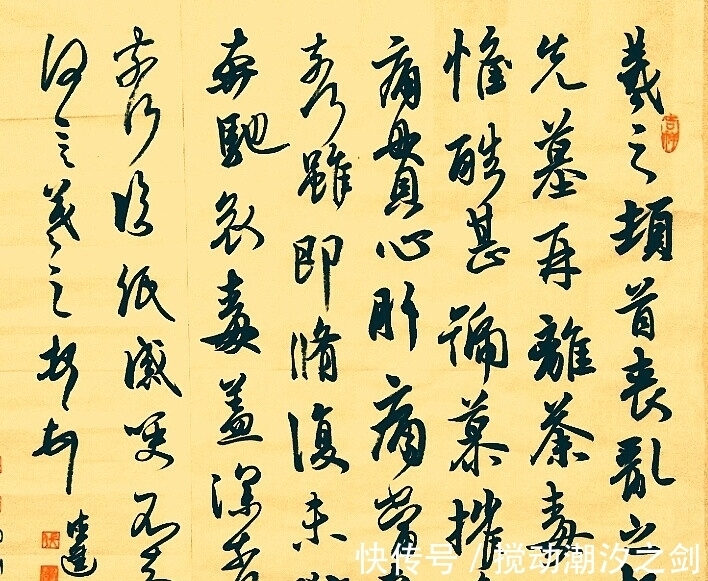 羲之頓首喪亂之
先墓再離荼毒
惟酷甚號慕摧
痛貫心肝痛當
奈何雖即脩復未
奔馳哀毒益深奈
奈何臨紙感哽不知
何言羲之頓首
快传号 / 搅动潮汐之剑